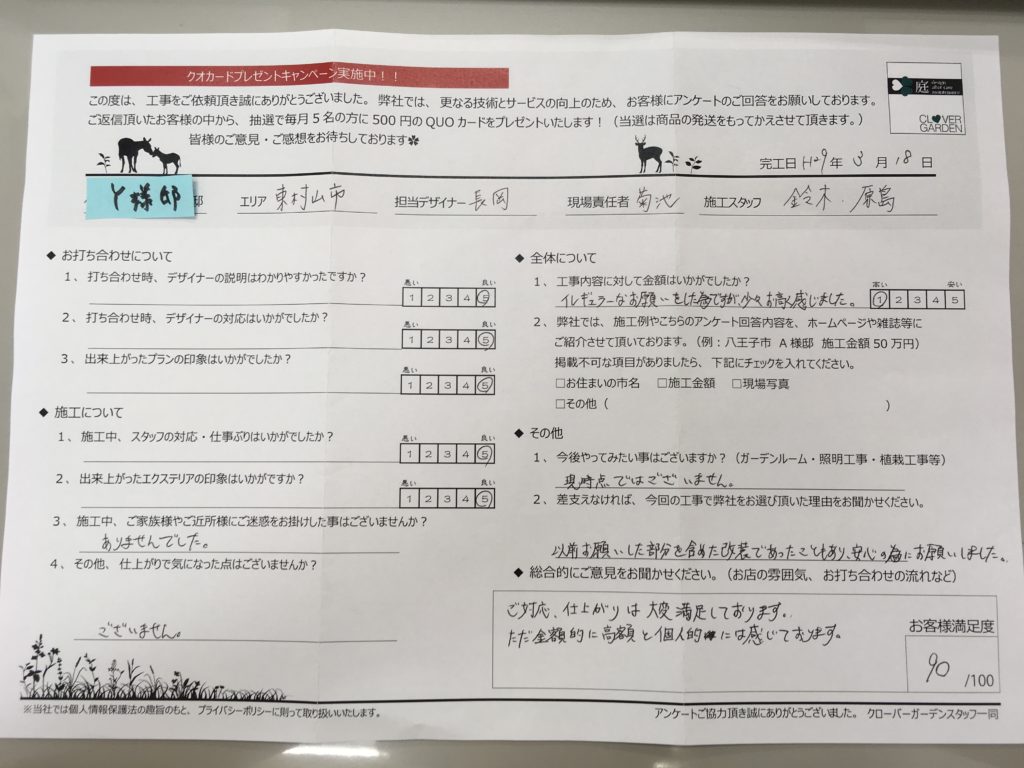 クオカードプレゼントキャンペーン実施中！！
この度は、工事をご依頼頂き誠にありがとうございました。弊社では、更なる技術とサービスの向上のため、お客様にアンケートのご回答をお願いしております。
ご返信頂いたお客様の中から、抽選で毎月５名の方に500円のQUOカードをプレゼントいたします！（当選は商品の発送をもってかえさせて頂きます。）
皆様のご意見・ご感想をお待ちしております✽
庭 design after care maintenance
CLOVER GARDEN
完工日 H29年 3月 18日
Y様邸 邸 エリア 東村山市 担当デザイナー 長岡 現場責任者 菊池 施工スタッフ 鈴木・原島
◆ お打ち合わせについて
１、打ち合わせ時、デザイナーの説明はわかりやすかったですか？
悪い 良い
1 2 3 4 5
２、打ち合わせ時、デザイナーの対応はいかがでしたか？
悪い 良い
1 2 3 4 5
３、出来上がったプランの印象はいかがでしたか？
悪い 良い
1 2 3 4 5
◆ 施工について
１、施工中、スタッフの対応・仕事ぶりはいかがでしたか？
悪い 良い
1 2 3 4 5
２、出来上がったエクステリアの印象はいかがですか？
悪い 良い
1 2 3 4 5
３、施工中、ご家族様やご近所様にご迷惑をお掛けした事はございませんか？
ありませんでした。
４、その他、仕上がりで気になった点はございませんか？
ございません。
◆ 全体について
１、工事内容に対して金額はいかがでしたか？
高い 安い
イレギュラーなお願いをした為ですが、少々お高く感じました。 1 2 3 4 5
２、弊社では、施工例やこちらのアンケート回答内容を、ホームページや雑誌等に
ご紹介させて頂いております。（例：八王子市 A様邸 施工金額50万円）
掲載不可な項目がありましたら、下記にチェックを入れてください。
□お住まいの市名 □施工金額 □現場写真
□その他（ ）
◆ その他
１、今後やってみたい事はございますか？（ガーデンルーム・照明工事・植栽工事等）
現時点ではございません。
２、差支えなければ、今回の工事で弊社をお選び頂いた理由をお聞かせください。
以前お願いした部分を含めた改装であったこともあり、安心の為にお願いしました。
◆ 総合的にご意見をお聞かせください。（お店の雰囲気、お打ち合わせの流れなど）
ご対応、仕上がりは大変満足しております。
ただ金額的に高額と個人的には感じております。
お客様満足度
90 /100
※当社では個人情報保護法の趣旨のもと、プライバシーポリシーに則って取り扱いいたします。
アンケートご協力頂き誠にありがとうございました。クローバーガーデンスタッフ一同